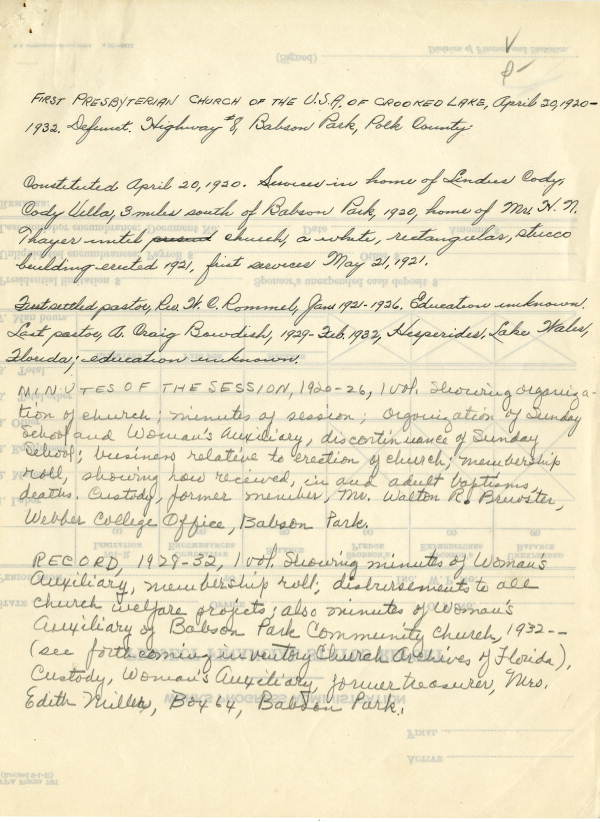 FIRST PRESBYTERIAN CHURCH OF THE U.S.A. OF CROOKED LAKE, April 20, 1920-
1932. Defunct. Highway #8, Babson Park, Polk County.
Constituted April 20, 1920. Services in home of Lindus Cody,
Cody Villa, 3 miles south of Babson Park, 1920, home of Mrs. H. N.
Thayer until church, a white, rectangular, stucco
building erected 1921, first services May 21, 1921.
First settled pastor, Rev. W. C. Rommel, Jan. 1921-1926. Education unknown.
Last pastor, A. Craig Bowdish, 1929-Feb. 1932, Hesperides, Lake Wales,
Florida; education unknown.
MINUTES OF THE SESSION, 1920-26, 1 vol. Showing organiza-
tion of church; minutes of session; organization of Sunday
School and Woman's Auxiliary, discontinuance of Sunday
School; business relative to erection of church; membership
roll, showing how received, in and adult baptisms,
deaths. Custody, former member, Mr. Walton R. Brewster,
Webber College Office, Babson Park.
RECORD, 1929-32, 1 vol. Showing minutes of Woman's
Auxiliary, membership roll; disbursements to all
church welfare projects; also minutes of Woman's
Auxiliary of Babson Park Community Church, 1932--
(see forthcoming inventory Church Archives of Florida),
Custody, Woman's Auxiliary, former treasurer, Mrs.
Edith Miller, Box 64, Babson Park.